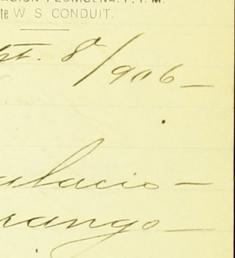 te W S CONDUIT.
pt. 8/906—
alacio—
rango—